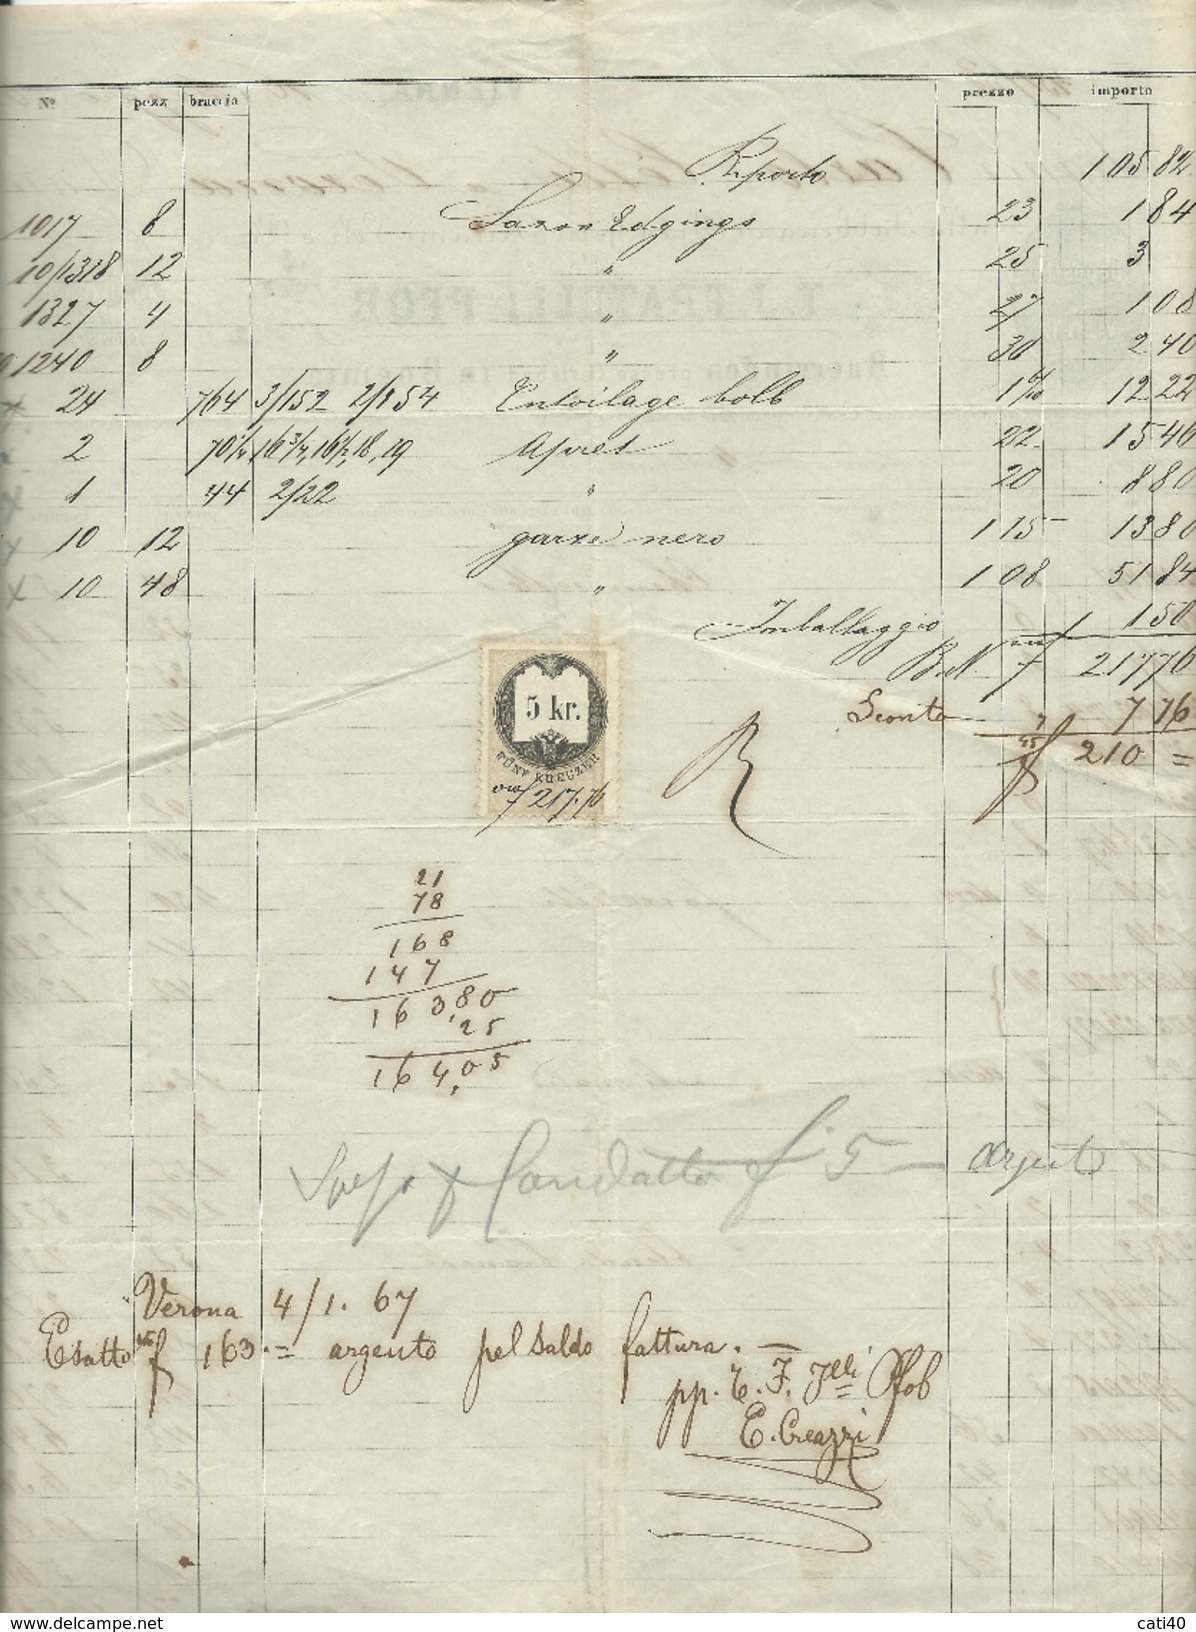 Nº pezz braccia prezzo importo
Riporto 105 82
1017 8 Saxon Edgings 23 1 84
10/1318 12 " 25 3
1327 4 " 27 1 08
1240 8 " 30 2 40
x 24 764 3/152 2/154 Entoilage bolb 12 22
x 2 70½ 16¾, 16½, 18, 19 Apret 22 15 46
x 1 44 2/22 " 20 8 80
x 10 12 garze nero 1 15 13 80
x 10 48 " 1 08 51 84
Imballaggio 1 50
B.N. f 217 76
Sconto 7 76
f 210 =
5 kr.
FÜNF KREUZER
f 217.76
21
78
168
147
163,80
,25
164,05
Spesa Condatta f 5 — argento
Verona 4/1. 67
Esatto f 163.= argento pel saldo fattura. —
pp. T. F.lli Pfob
E. Creazzi
www.delcampe.net cati40